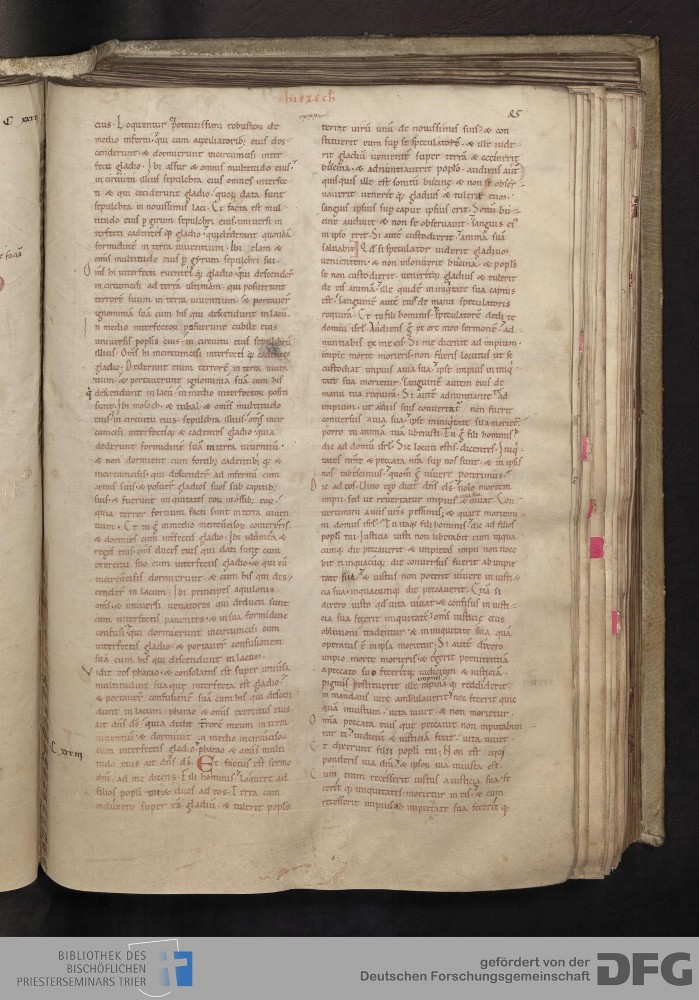 hiezech
85
eius. Loquentur ei potentissimi robustor de
medio inferni. qui cum auxiliatorib; eius des
cenderunt. & dormierunt incircumcisi inter
fecti gladio. Ibi assur & omnis multitudo eius.
in circuitu illius sepulchra eius omnes interfec
ti & qui ceciderunt gladio. quor data sunt
sepulchra in novissimis laci. Et facta est mul
titudo eius p gyrum sepulchri eius. universi in
terfecti cadentesq; gladio. qui dederant quonda
formidine in terra viventium. Ibi elam &
omis multitudo eius p gyrum sepulchri sui.
oms hi interfecti ruentesq; gladio. qui descender
in circumcisi ad terra ultimam. qui posuerunt
terrore suum in terra viventium. & portaver
ignominia sua cum his qui descendunt in lacu.
In medio interfector posuerunt cubile eius
universis populis eius. in circuitu eius sepulchru
illius. Oms hi incircumcisi interfecti q; cadentes
gladio. Dederunt enim terrore in terra viven
tium. & portaverunt ignominia sua cum his
descendunt in lacu. in medio interfector positi
sunt. Ibi mosoch & tubal & omis multitudo
eius. in circuitu eius sepulchra illius. oms incir
cumcisi interfectiq; & cadentes gladio. quia
dederunt formidine sua in terra viventiu.
& non dormient cum fortib; cadentib; q; &
incircumcisis. qui descender ad infernu cum
armis suis. & posuer gladios suos sub capitib;
suis. & fuerunt iniquitates eor in ossib; eor.
quia terror fortium facti sunt in terra viven
tium. Et tu g in medio incircumcisor contereris.
& dormies cum interfectis gladio. Ibi idumea &
reges eius. oms duces eius qui dati sunt cum
exercitu suo cum interfectis gladio. & qui cu
incircumcisis dormierunt. & cum his qui des
cender in lacum. Ibi principes aquilonis
oms. & universi venatores qui deducti sunt
cum interfectis paventes. & in sua formidine
confusi. qui dormierunt incircumcisi cum
interfectis gladio. & portaver confusionem
sua cum his qui descendunt in lacum.
Vidit eos pharao. & consolatus est super universa
multitudine sua que interfecta est gladio.
& portaver confusione sua cum his qui descen
dunt in lacum. pharao & omis exercitus eius
ait dns ds. quia dedit terrore meum in terra
viventiu. & dormivit in medio incircumcisor
cum interfectis gladio. pharao & omis multi
tudo eius ait dns ds. Et factus est sermo
C xxxiii
dni ad me dicens. Fili hominis loquere ad
filios populi tui & dices ad eos. Terra cum
induxero super ea gladiu. & tulerit populus
terrae viru unu de novissimis suis & con
stituerit eum sup se speculatore. & ille vide
rit gladiu venientem super terra & cecinerit
bucina. & adnuntiaverit populo. audiens aut
quisquis ille est sonitu bucine & non se obser
vaverit veneritq; gladius & tulerit eum.
sanguis ipsius sup caput ipsius erit. Sonu bu
cine audivit & non se observavit. sanguis ei
in ipso erit. Si aute custodierit. anima sua
salvabit. Qd si speculator viderit gladium
venientem. & non insonuerit bucina. & populus
se non custodierit. veneritq; gladius & tulerit
de eis anima. ille quide in iniquitate sua captus
est. sanguine aute eius de manu speculatoris
requira. Et tu fili hominis speculatore dedi te
domui isrl. Audiens g ex ore meo sermone ad
nuntiabis ex me eis. Si me dicente ad impium
impie morte morieris. non fueris locutus ut se
custodiat impius a via sua. ipse impius in iniqui
tate sua morietur. sanguine autem eius de
manu tua requira. Si aute adnuntiante te ad
impium. ut a viis suis convertat. non fuerit
conversus a via sua. ipse in iniquitate sua morietur.
porro tu anima tua liberasti. Tu g fili hominis
dic ad domu isrl. Sic locuti estis dicentes. Iniqui
tates nostre & peccata nra sup nos sunt. & in ipsis
nos tabescimus. quom g vivere poterimus.
Dic ad eos. Vivo ego dicit dns ds. nolo mortem
impii. sed ut revertatur impius a via sua & vivat. Con
vertimini a viis vris pessimis. & quare moriemi
ni domus isrl. Tu itaq; fili hominis. dic ad filios
populi tui. Iusticia iusti non liberabit eum in qua
cumq; die peccaverit. & impietas impii non noce
bit ei in quacuq; die conversus fuerit ab impie
tate sua. & iustus non poterit vivere in iusti
cia sua. in quacumq; die peccaverit. Etia si
dixero iusto qd vita vivat. & confisus in iusti
cia sua fecerit iniquitate. oms iusticie eius
oblivioni tradentur. & in iniquitate sua qua
operatus e in ipsa morietur. Si aute dixero
impio morte morieris. & egerit penitentia
a peccato suo feceritq; iudicium & iusticia.
pignus restituerit ille rapina q; reddiderit
in mandatis vite ambulaverit nec fecerit quic
qua iniustum. vita vivet & non morietur.
Omia peccata eius que peccavit non inputabun
tur ei. iudiciu & iusticia fecit. vita vivet.
Et dixerunt filii populi tui. Non est equi
ponderis via dni. & ipsor via iniusta est.
Cum enim recesserit iustus a iusticia sua fe
ceritq; iniquitates. morietur in eis. & cum
recesserit impius ab impietate sua fecerit q;
BIBLIOTHEK DES
BISCHÖFLICHEN
PRIESTERSEMINARS TRIER
gefördert von der
Deutschen Forschungsgemeinschaft
DFG